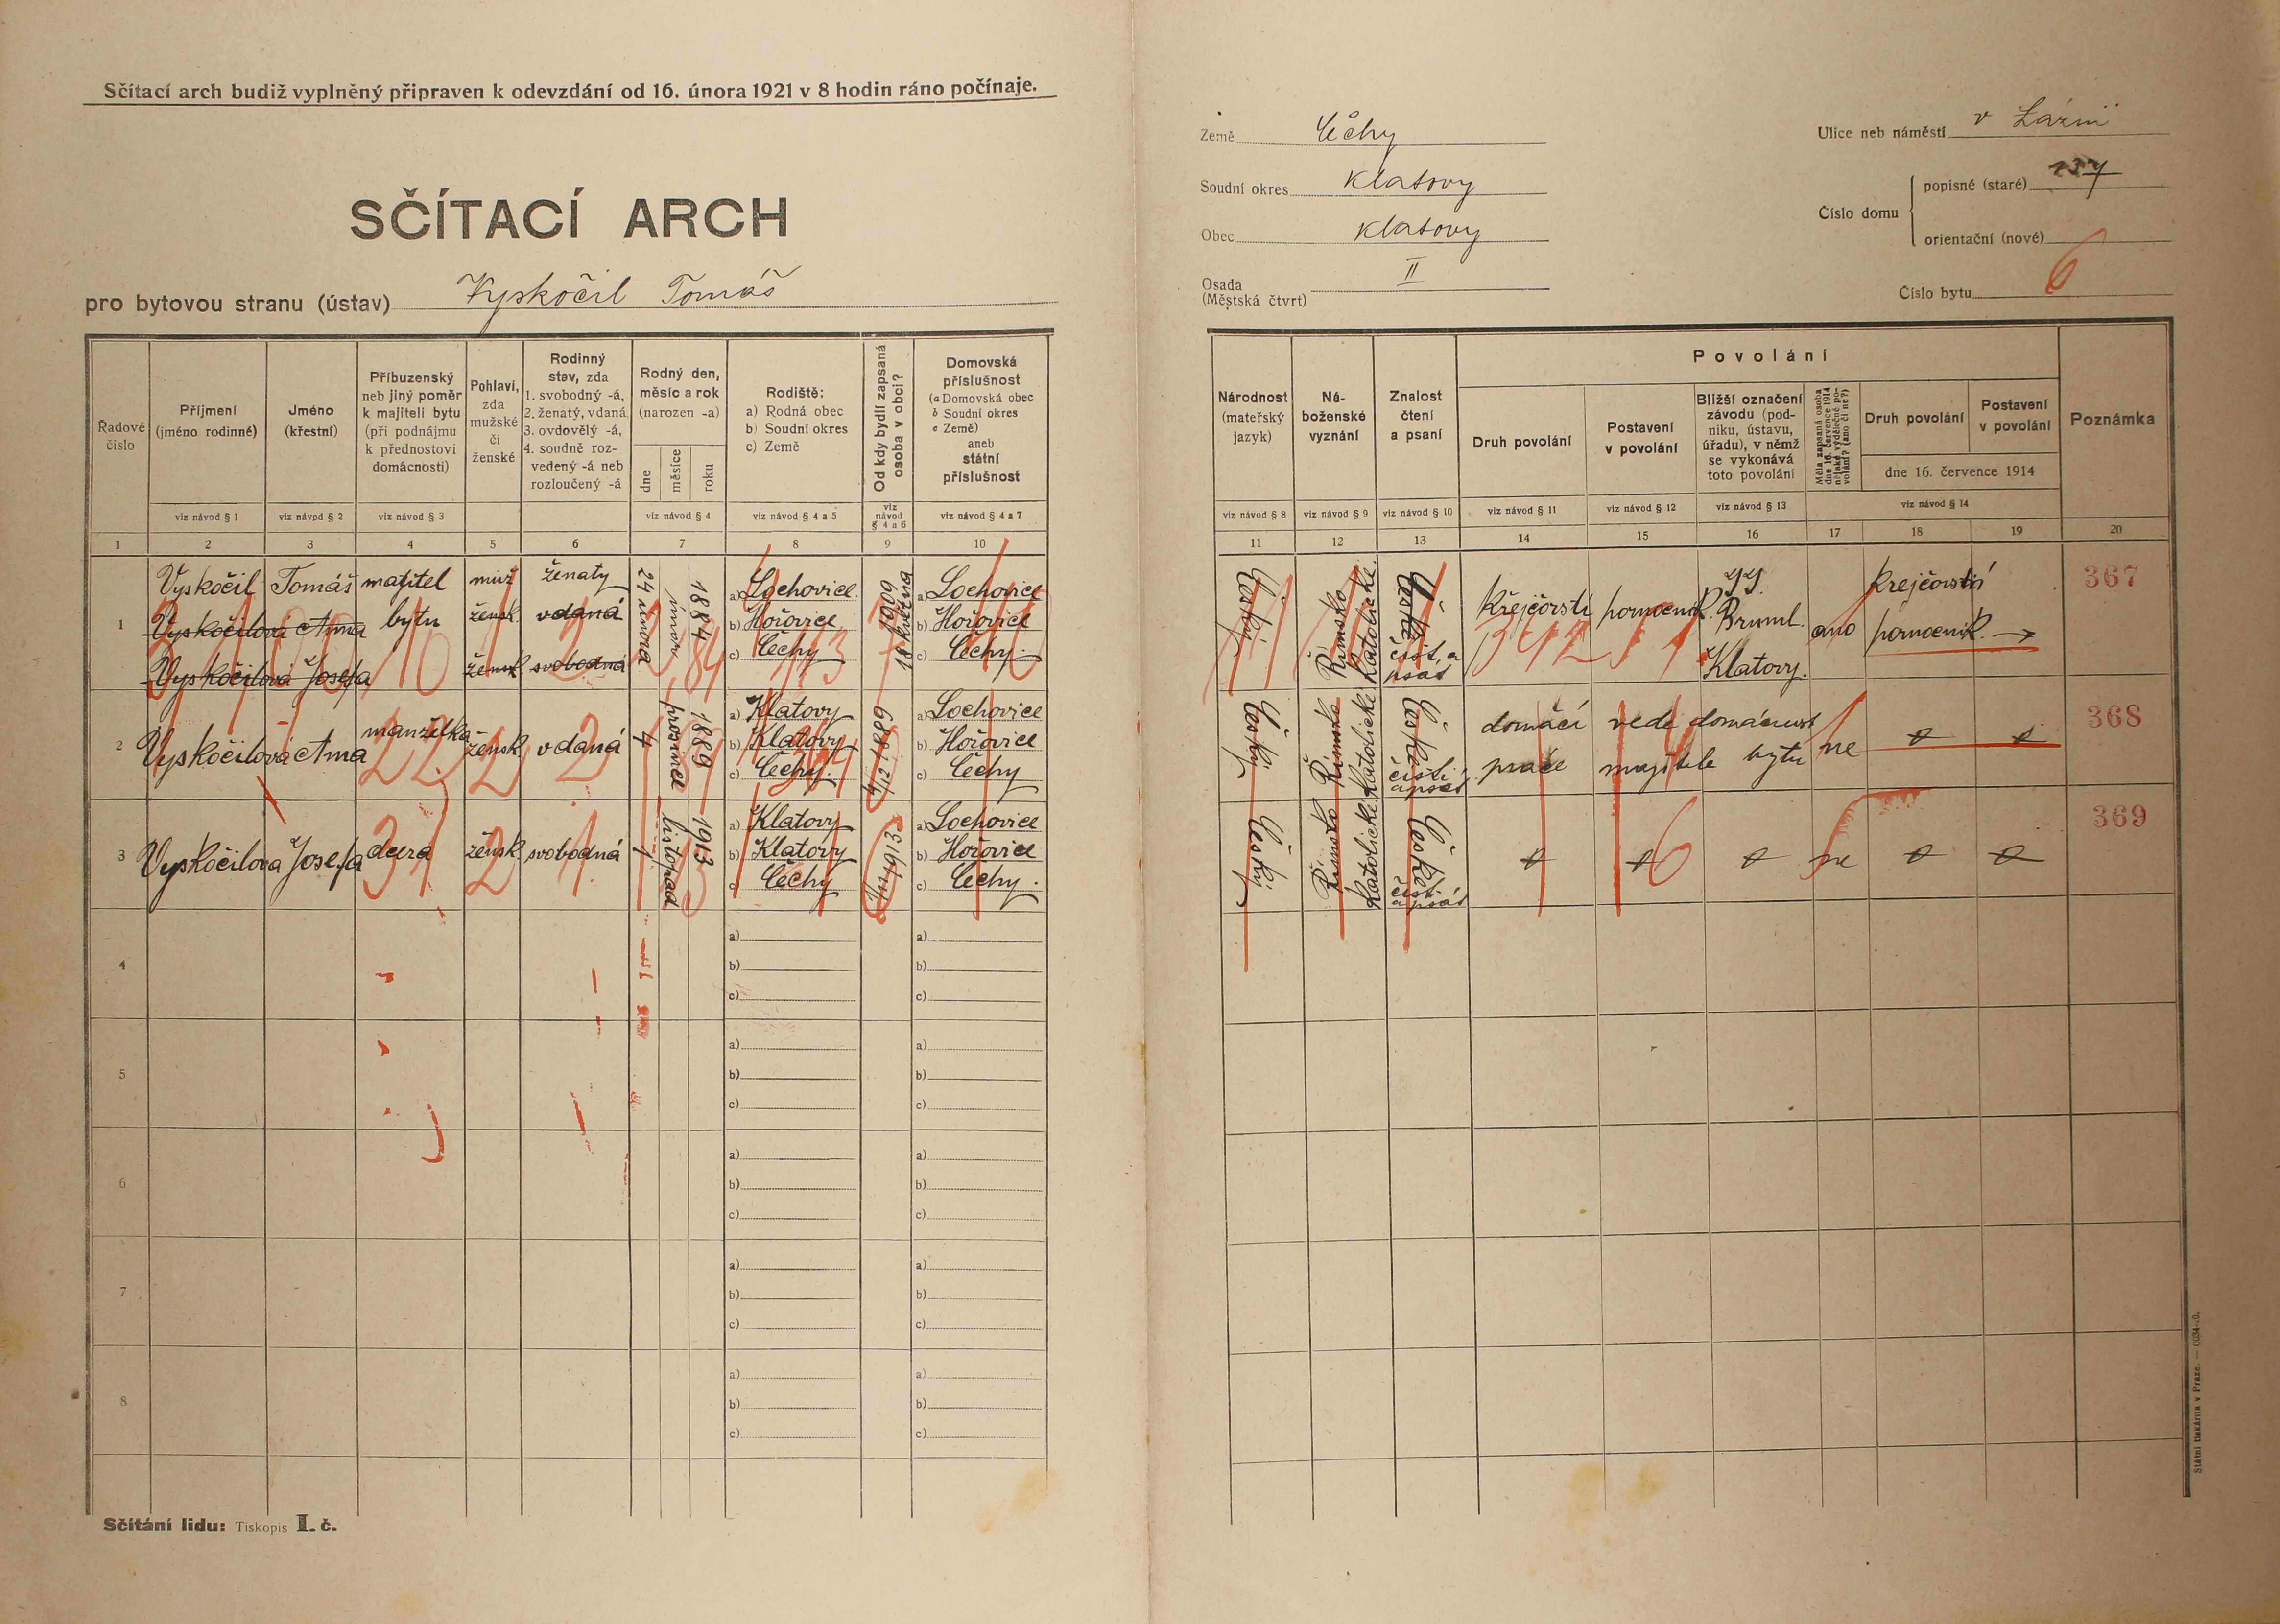 Sčítací arch budiž vyplněný připraven k odevzdání od 16. února 1921 v 8 hodin ráno počínaje.
SČÍTACÍ ARCH
pro bytovou stranu (ústav) Vyskočil Tomáš
Země Čechy
Soudní okres Klatovy
Obec Klatovy
Osada II
(Městská čtvrt)
Ulice neb náměstí v Lázni
Číslo domu
popisné (staré) 137
orientační (nové)
Číslo bytu 6
Řadové číslo
Příjmení (jméno rodinné)
Jméno (křestní)
Příbuzenský neb jiný poměr k majiteli bytu (při podnájmu k přednostovi domácnosti)
Pohlaví, zda mužské či ženské
Rodinný stav, zda 1. svobodný -á, 2. ženatý, vdaná, 3. ovdovělý -á, 4. soudně rozvedený -á neb rozloučený -á
Rodný den, měsíc a rok (narozen -a)
dne měsíce roku
Rodiště:
a) Rodná obec
b) Soudní okres
c) Země
Od kdy bydlí zapsaná osoba v obci?
Domovská příslušnost
(a Domovská obec
b Soudní okres
c Země)
aneb státní příslušnost
viz návod § 1 viz návod § 2 viz návod § 3 viz návod § 4 viz návod § 4 a 5 viz návod § 4 a 6 viz návod § 4 a 7
1 2 3 4 5 6 7 8 9 10
Národnost (mateřský jazyk)
Náboženské vyznání
Znalost čtení a psaní
Povolání
Druh povolání
Postavení v povolání
Bližší označení závodu (podniku, ústavu, úřadu), v němž se vykonává toto povolání
Měla zapsaná osoba dne 16. července 1914 nějaké výdělečné povolání? (ano či ne?)
Druh povolání
Postavení v povolání
dne 16. července 1914
Poznámka
viz návod § 8 viz návod § 9 viz návod § 10 viz návod § 11 viz návod § 12 viz návod § 13 viz návod § 14
11 12 13 14 15 16 17 18 19 20
1 Vyskočil Tomáš majitel bytu muž ženatý 24 února 1884
a) Lochovice
b) Hořovice
c) Čechy
1909 18 května
a) Lochovice
b) Hořovice
c) Čechy
Vyskočilová Anna žensk. vdaná
Vyskočilová Josefa žensk svobodná
Český Římsko Katolické České číst, a psát
Krejčovství pomocník. Bruml. Klatovy. ano Krejčovství pomocník. 367
2 Vyskočilová Anna manželka žensk. vdaná 4 prosince 1889
a) Klatovy
b) Klatovy
c) Čechy.
4/12 1889
a) Lochovice
b) Hořovice
c) Čechy
Český Římsko Katolické České
domácí práce vede domácnost majitele bytu ne 368
3 Vyskočilova Josefa dcera žensk. svobodná 1 listopad 1913
a) Klatovy
b) Klatovy
c) Čechy
1/11 1913
a) Lochovice
b) Hořovice
c) Čechy.
Český Římsko Katolické České
ne 369
4 a) b) c) a) b) c)
5 a) b) c) a) b) c)
6 a) b) c) a) b) c)
7 a) b) c) a) b) c)
8 a) b) c) a) b) c)
Sčítání lidu: Tiskopis I. č.